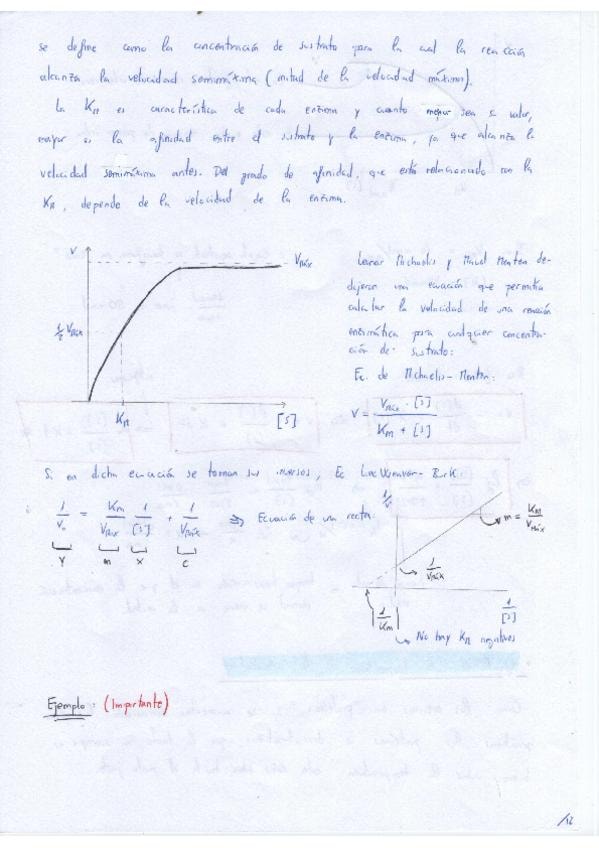 se define como la concentración de sustrato para la cual la reacción
alcanza la velocidad semimáxima (mitad de la velocidad máxima).
La KM es característica de cada enzima y cuanto menor sea su valor,
mayor es la afinidad entre el sustrato y la enzima, ya que alcanza la
velocidad semimáxima antes. Del grado de afinidad, que está relacionado con la
KM, depende de la velocidad de la enzima.
V
VMáx
1/2 VMáx
KM
[S]
Leonor Michaelis y Maud Menten de-
dujeron una ecuación que permitía
calcular la velocidad de una reacción
enzimática para cualquier concentra-
ción de sustrato:
Ec. de Michaelis-Menten:
V = VMáx · [S] / Km + [S]
Si en dicha ecuación se toman sus inversos, Ec Lineweaver-Burk
1/V₀ = Km/VMax 1/[S] + 1/VMáx ⇒ Ecuación de una recta:
Y m x c
1/V
m = Km/VMáx
1/VMáx
|1/Km|
1/[S]
No hay KM negativos
Ejemplo: (Importante)
/12